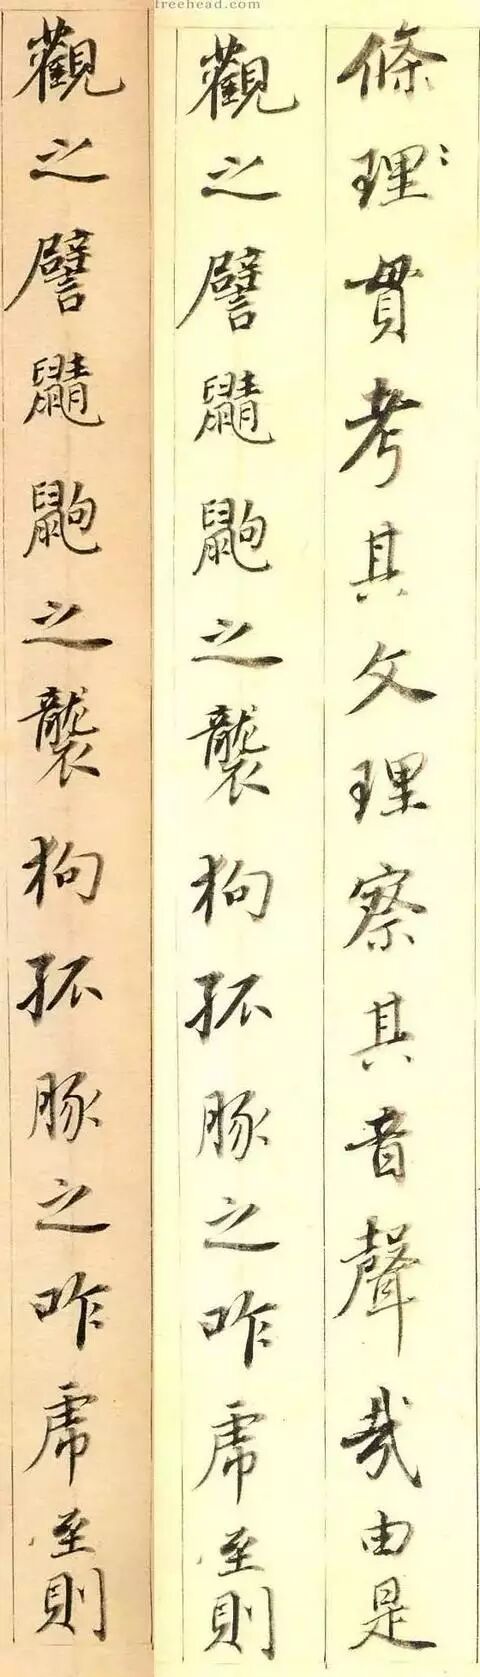 freehead.com
條理貫考其文理察其音聲哉由是
觀之譬鼱鼩之襲狗孤豚之咋虎至則
觀之譬鼱鼩之襲狗孤豚之咋虎至則